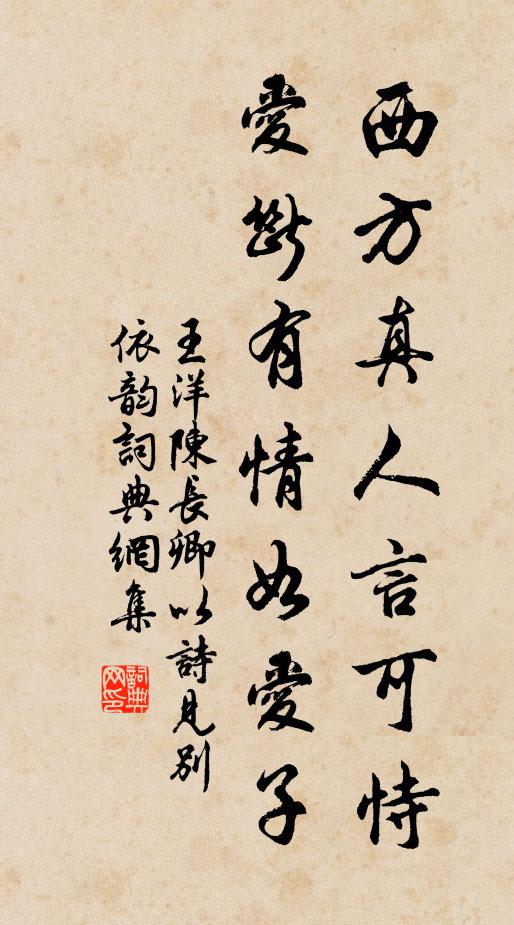 西方真人言可恃
愛斷有情如愛子
王洋陳長卿以詩見別
依韵詞典網集
詞典网印